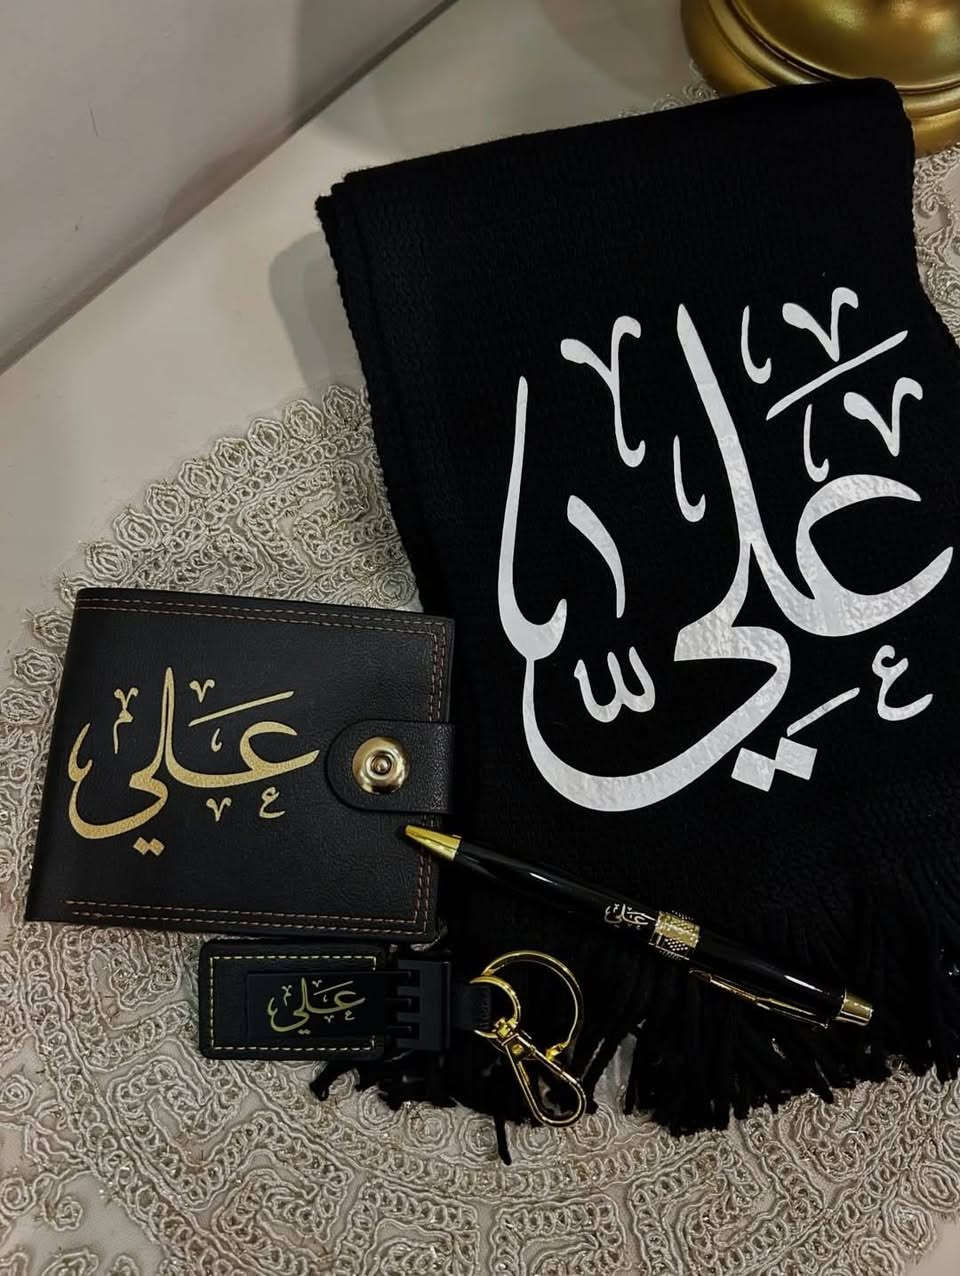 علي
علي
علي
علي